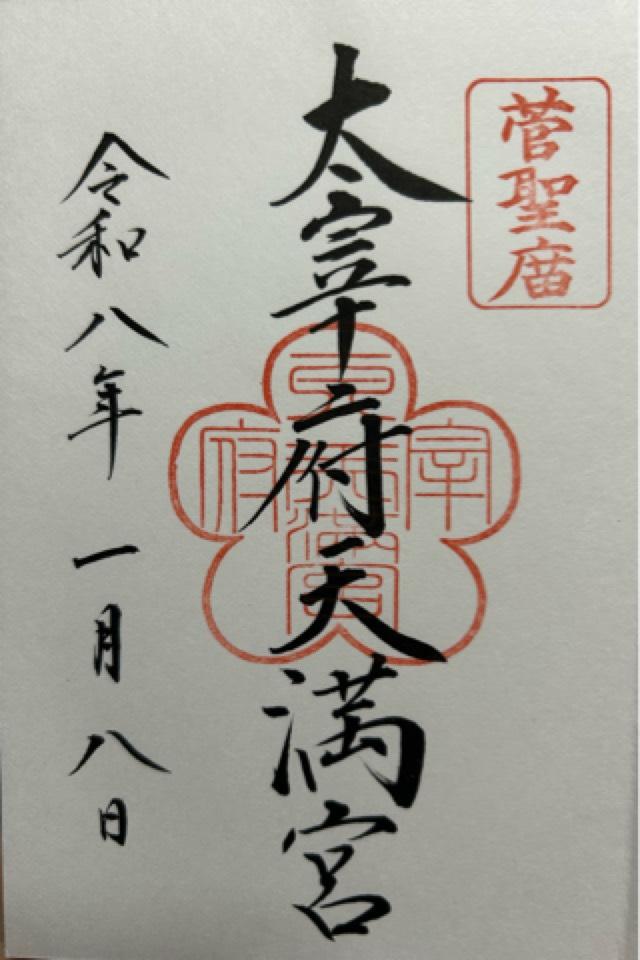 菅聖庿
太宰府天満宮
令和八年一月八日